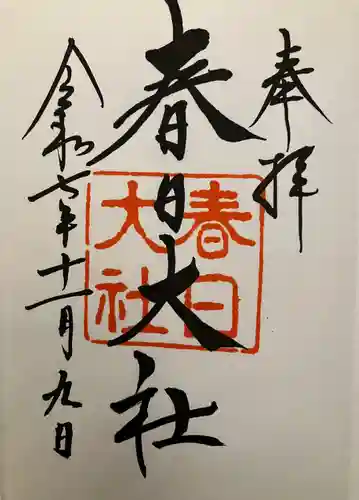 奉拝
春日大社
春日
大社
令和七年十一月九日